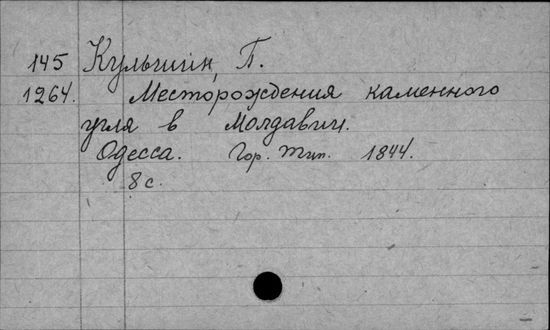 145 Кульшин, П.
1264. Месторождения каменного
угля в Молдавии.
Одесса. Гор. тип. 1844.
8 с.